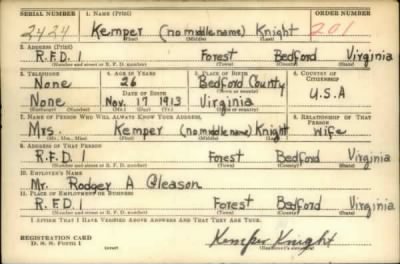 SERIAL NUMBER 1. NAME (Print) ORDER NUMBER
2424 Kemper (no middle name) Knight 201
(First) (Middle) (Last)
2. ADDRESS (Print)
R.F.D. 1 Forest Bedford Virginia
(Number and street or R. F. D. number) (Town) (County) (State)
3. TELEPHONE 4. AGE IN YEARS 5. PLACE OF BIRTH 6. COUNTRY OF CITIZENSHIP
None 26 Bedford County
DATE OF BIRTH (Town or county) U.S.A
None Nov. 17 1913 Virginia
(Exchange) (Number) (Mo.) (Day) (Yr.) (State or country)
7. NAME OF PERSON WHO WILL ALWAYS KNOW YOUR ADDRESS 8. RELATIONSHIP OF THAT PERSON
Mrs. Kemper (no middle name) Knight Wife
(Mr., Mrs., Miss) (First) (Middle) (Last)
9. ADDRESS OF THAT PERSON
R.F.D. 1 Forest Bedford Virginia
(Number and street or R. F. D. number) (Town) (County) (State)
10. EMPLOYER'S NAME
Mr. Rodger A Gleason
11. PLACE OF EMPLOYMENT OR BUSINESS
R.F.D. 1 Forest Bedford Virginia
(Number and street or R. F. D. number) (Town) (County) (State)
I AFFIRM THAT I HAVE VERIFIED ABOVE ANSWERS AND THAT THEY ARE TRUE.
REGISTRATION CARD
D. S. S. Form 1 Kemper Knight
(Registrant's signature)